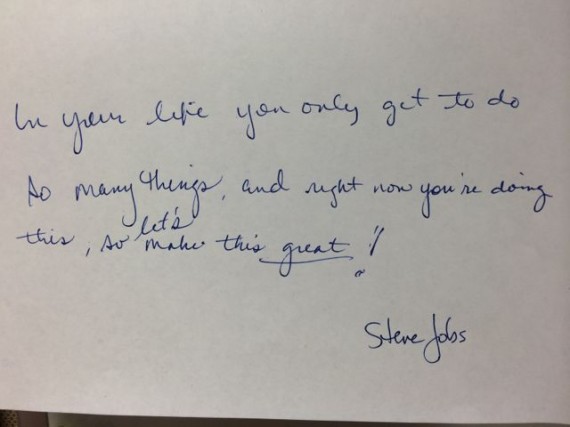 In your life you only get to do
so many things, and right now you're doing
this, so let's make this great!
Steve Jobs